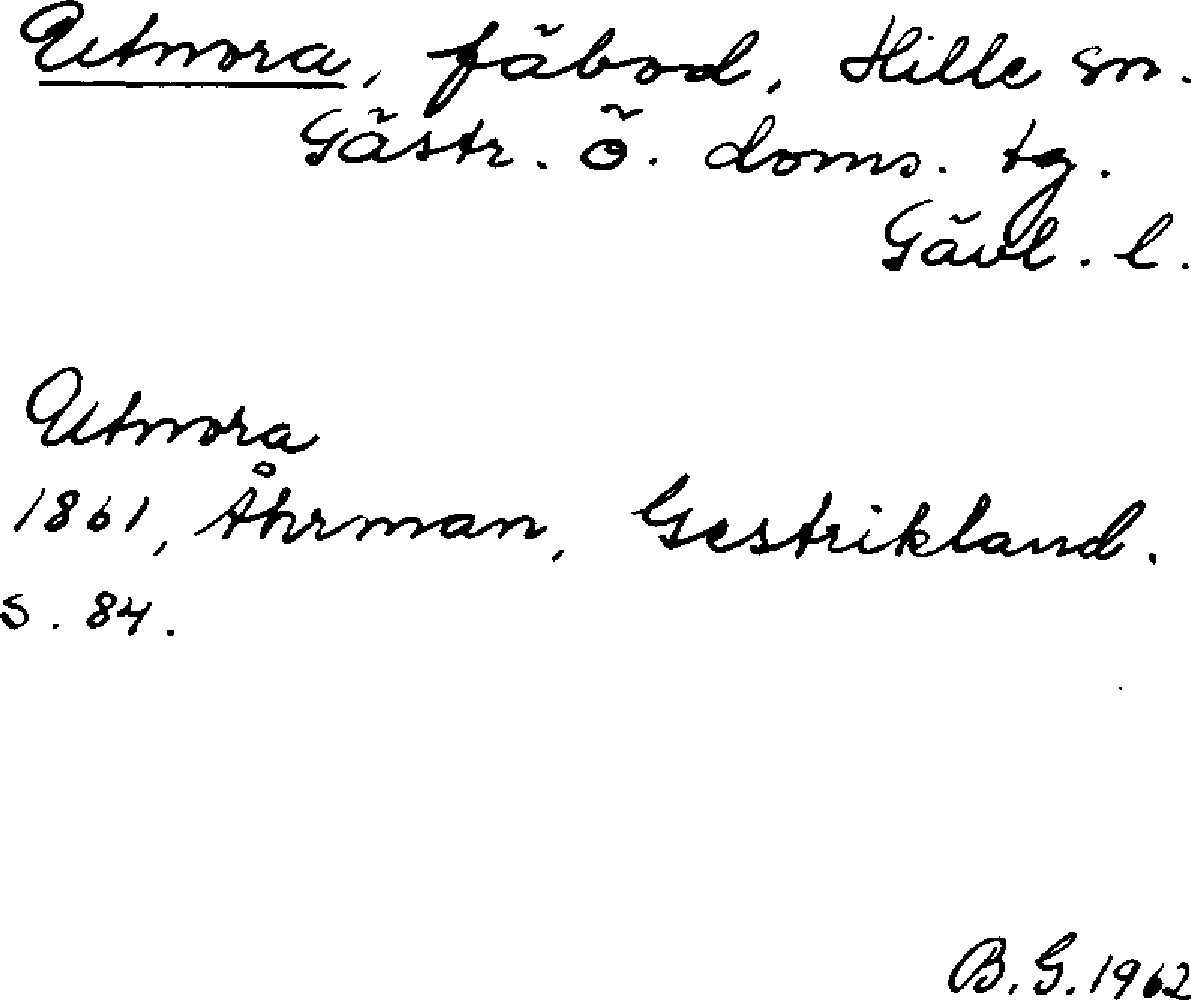 Utnora, fäbod, Hille sn.
Gästr. Ö. doms. tg.
Gävl. l.
Utnora
1861, Åhrman, Gestrikland.
s. 84.
B.G. 1962